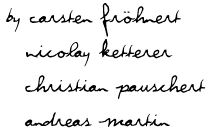 by carsten fröhnert
nicolay ketterer
christian pauschert
andreas martin